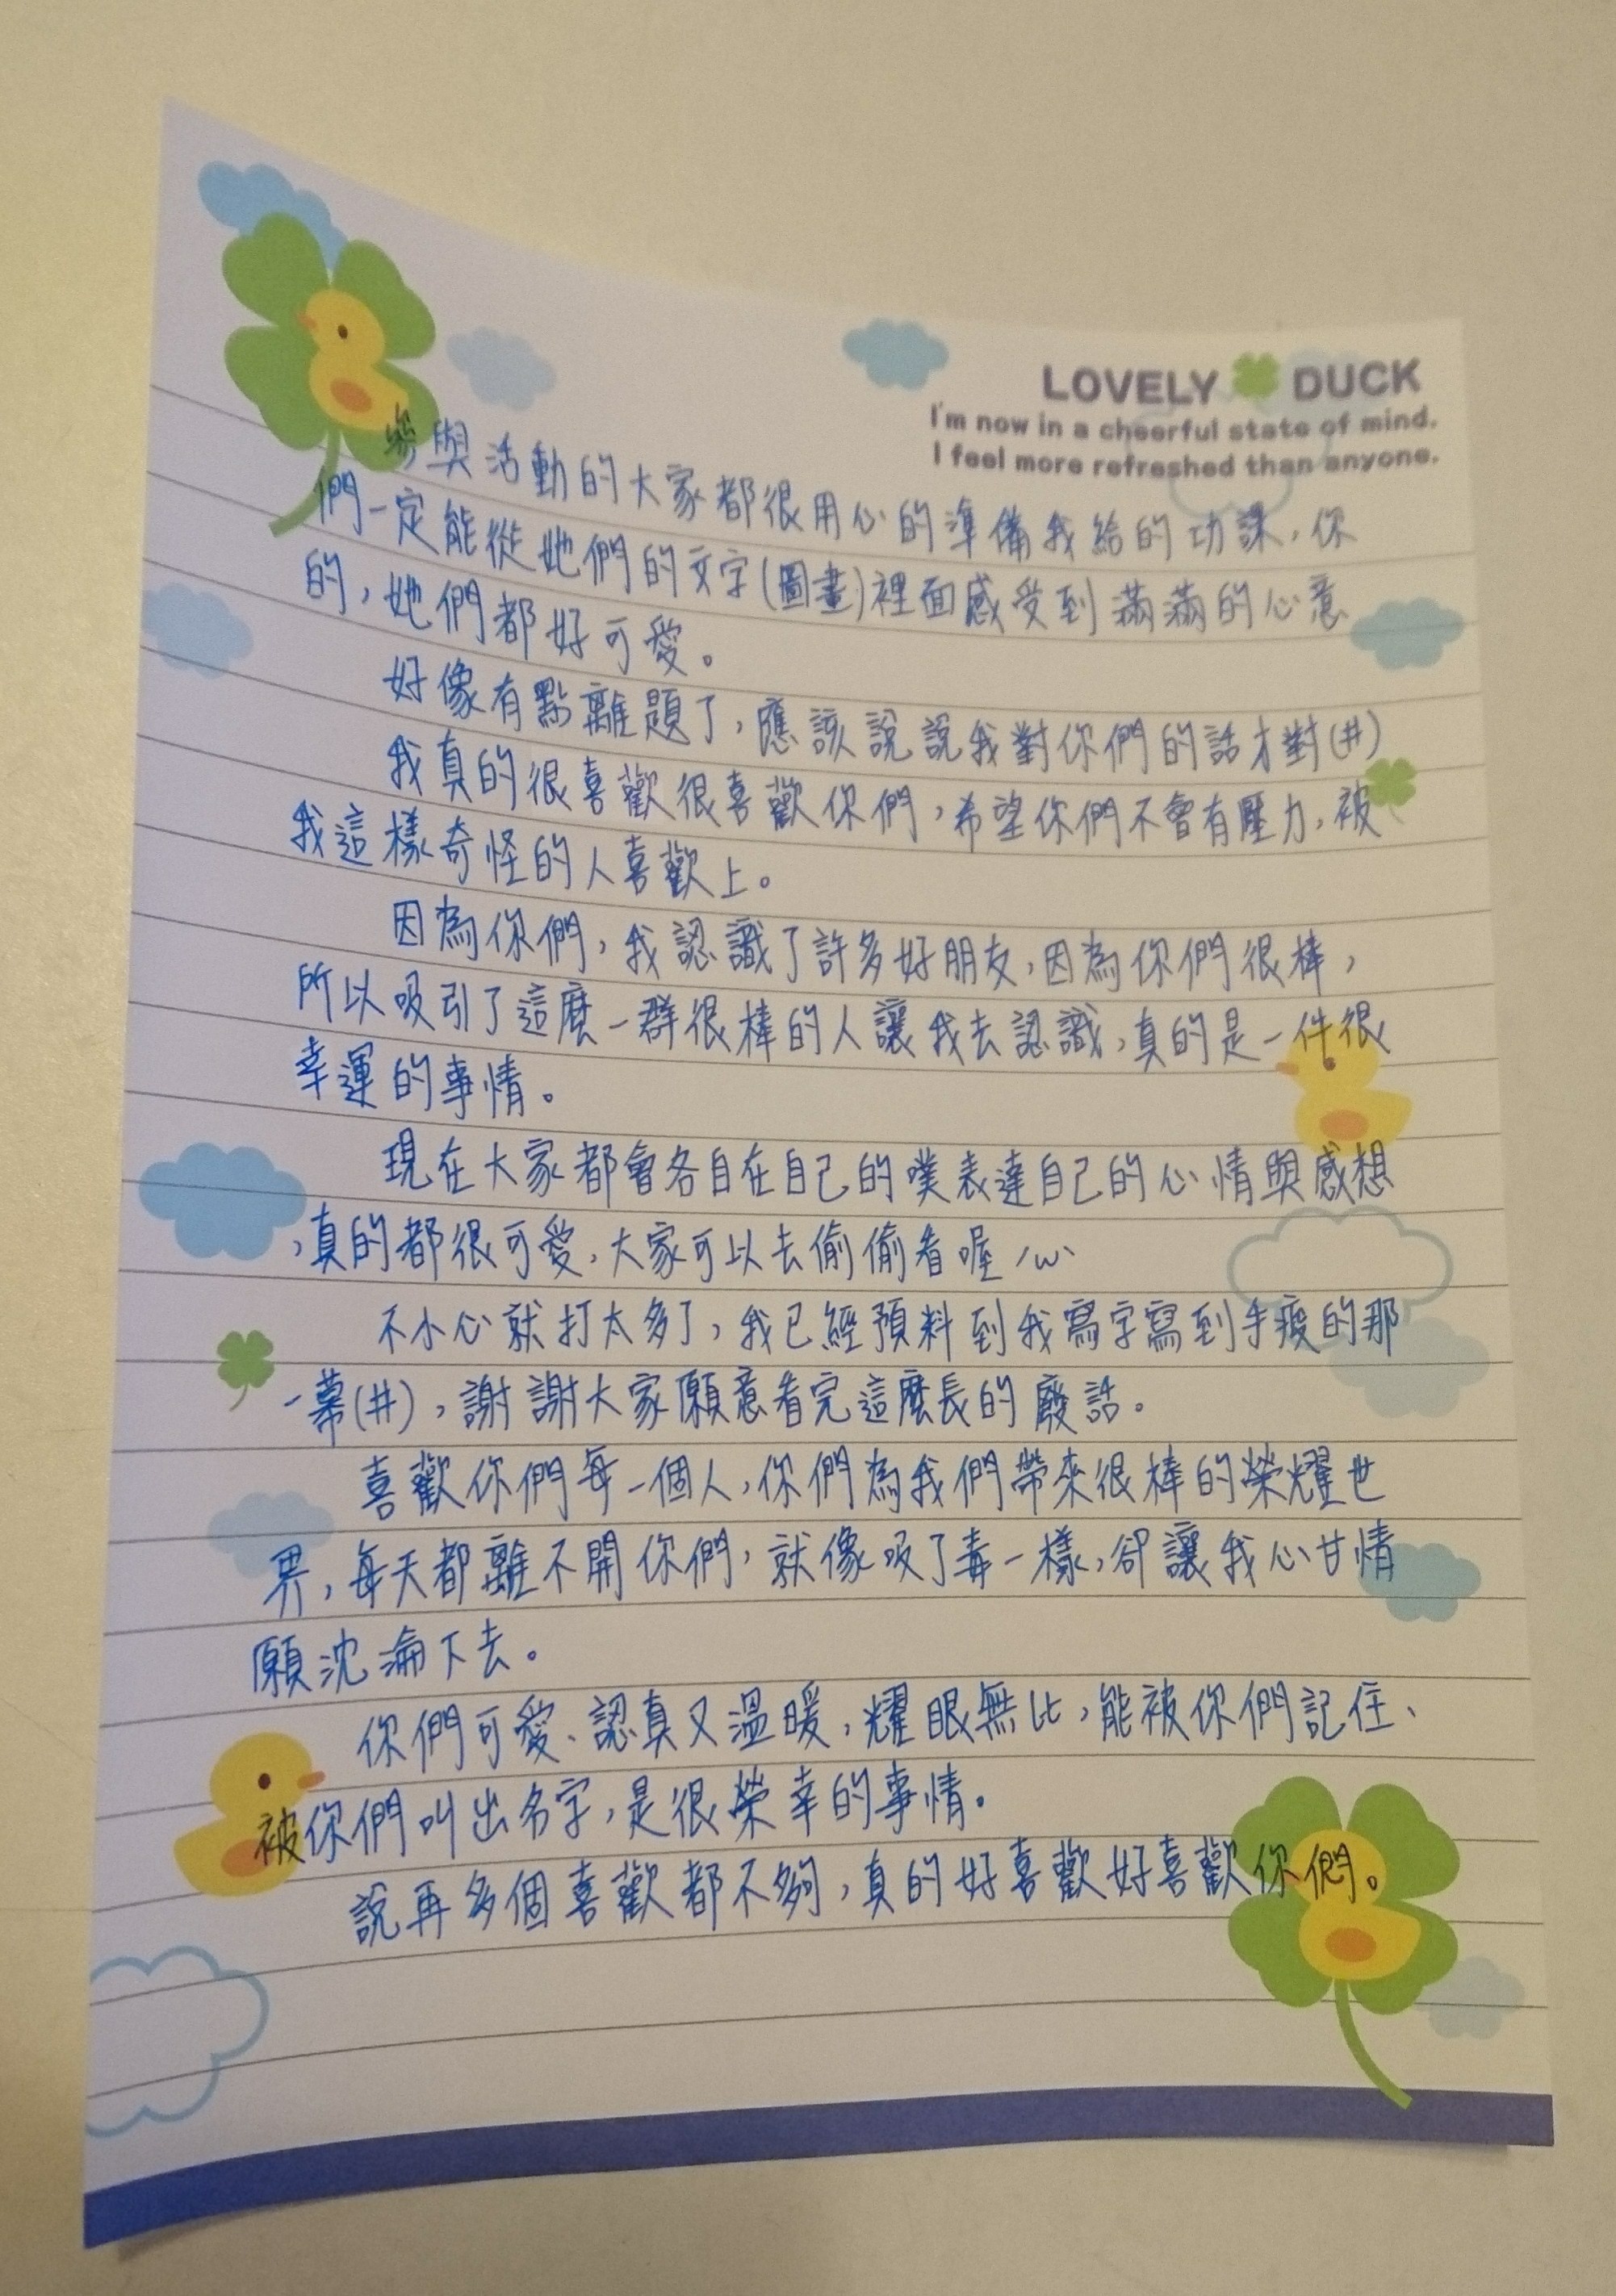 LOVELY DUCK
I'm now in a cheerful state of mind.
I feel more refreshed than anyone.
參與活動的大家都很用心的準備我給的功課,你
們一定能從她們的文字(圖畫)裡面感受到滿滿的心意
的,她們都好可愛。
好像有點離題了,應該說說我對你們的話才對(#)
我真的很喜歡很喜歡你們,希望你們不會有壓力,被
我這樣奇怪的人喜歡上。
因為你們,我認識了許多好朋友,因為你們很棒,
所以吸引了這麼一群很棒的人讓我去認識,真的是一件很
幸運的事情。
現在大家都會各自在自己的噗表達自己的心情與感想
,真的都很可愛,大家可以去偷偷看喔/ω\
不小心就打太多了,我已經預料到我寫字寫到手痠的那
一幕(#),謝謝大家願意看完這麼長的廢話。
喜歡你們每一個人,你們為我們帶來很棒的榮耀世
界,每天都離不開你們,就像吸了毒一樣,卻讓我心甘情
願沈淪下去。
你們可愛、認真又溫暖,耀眼無比,能被你們記住、
被你們叫出名字,是很榮幸的事情。
說再多個喜歡都不夠,真的好喜歡好喜歡你們。